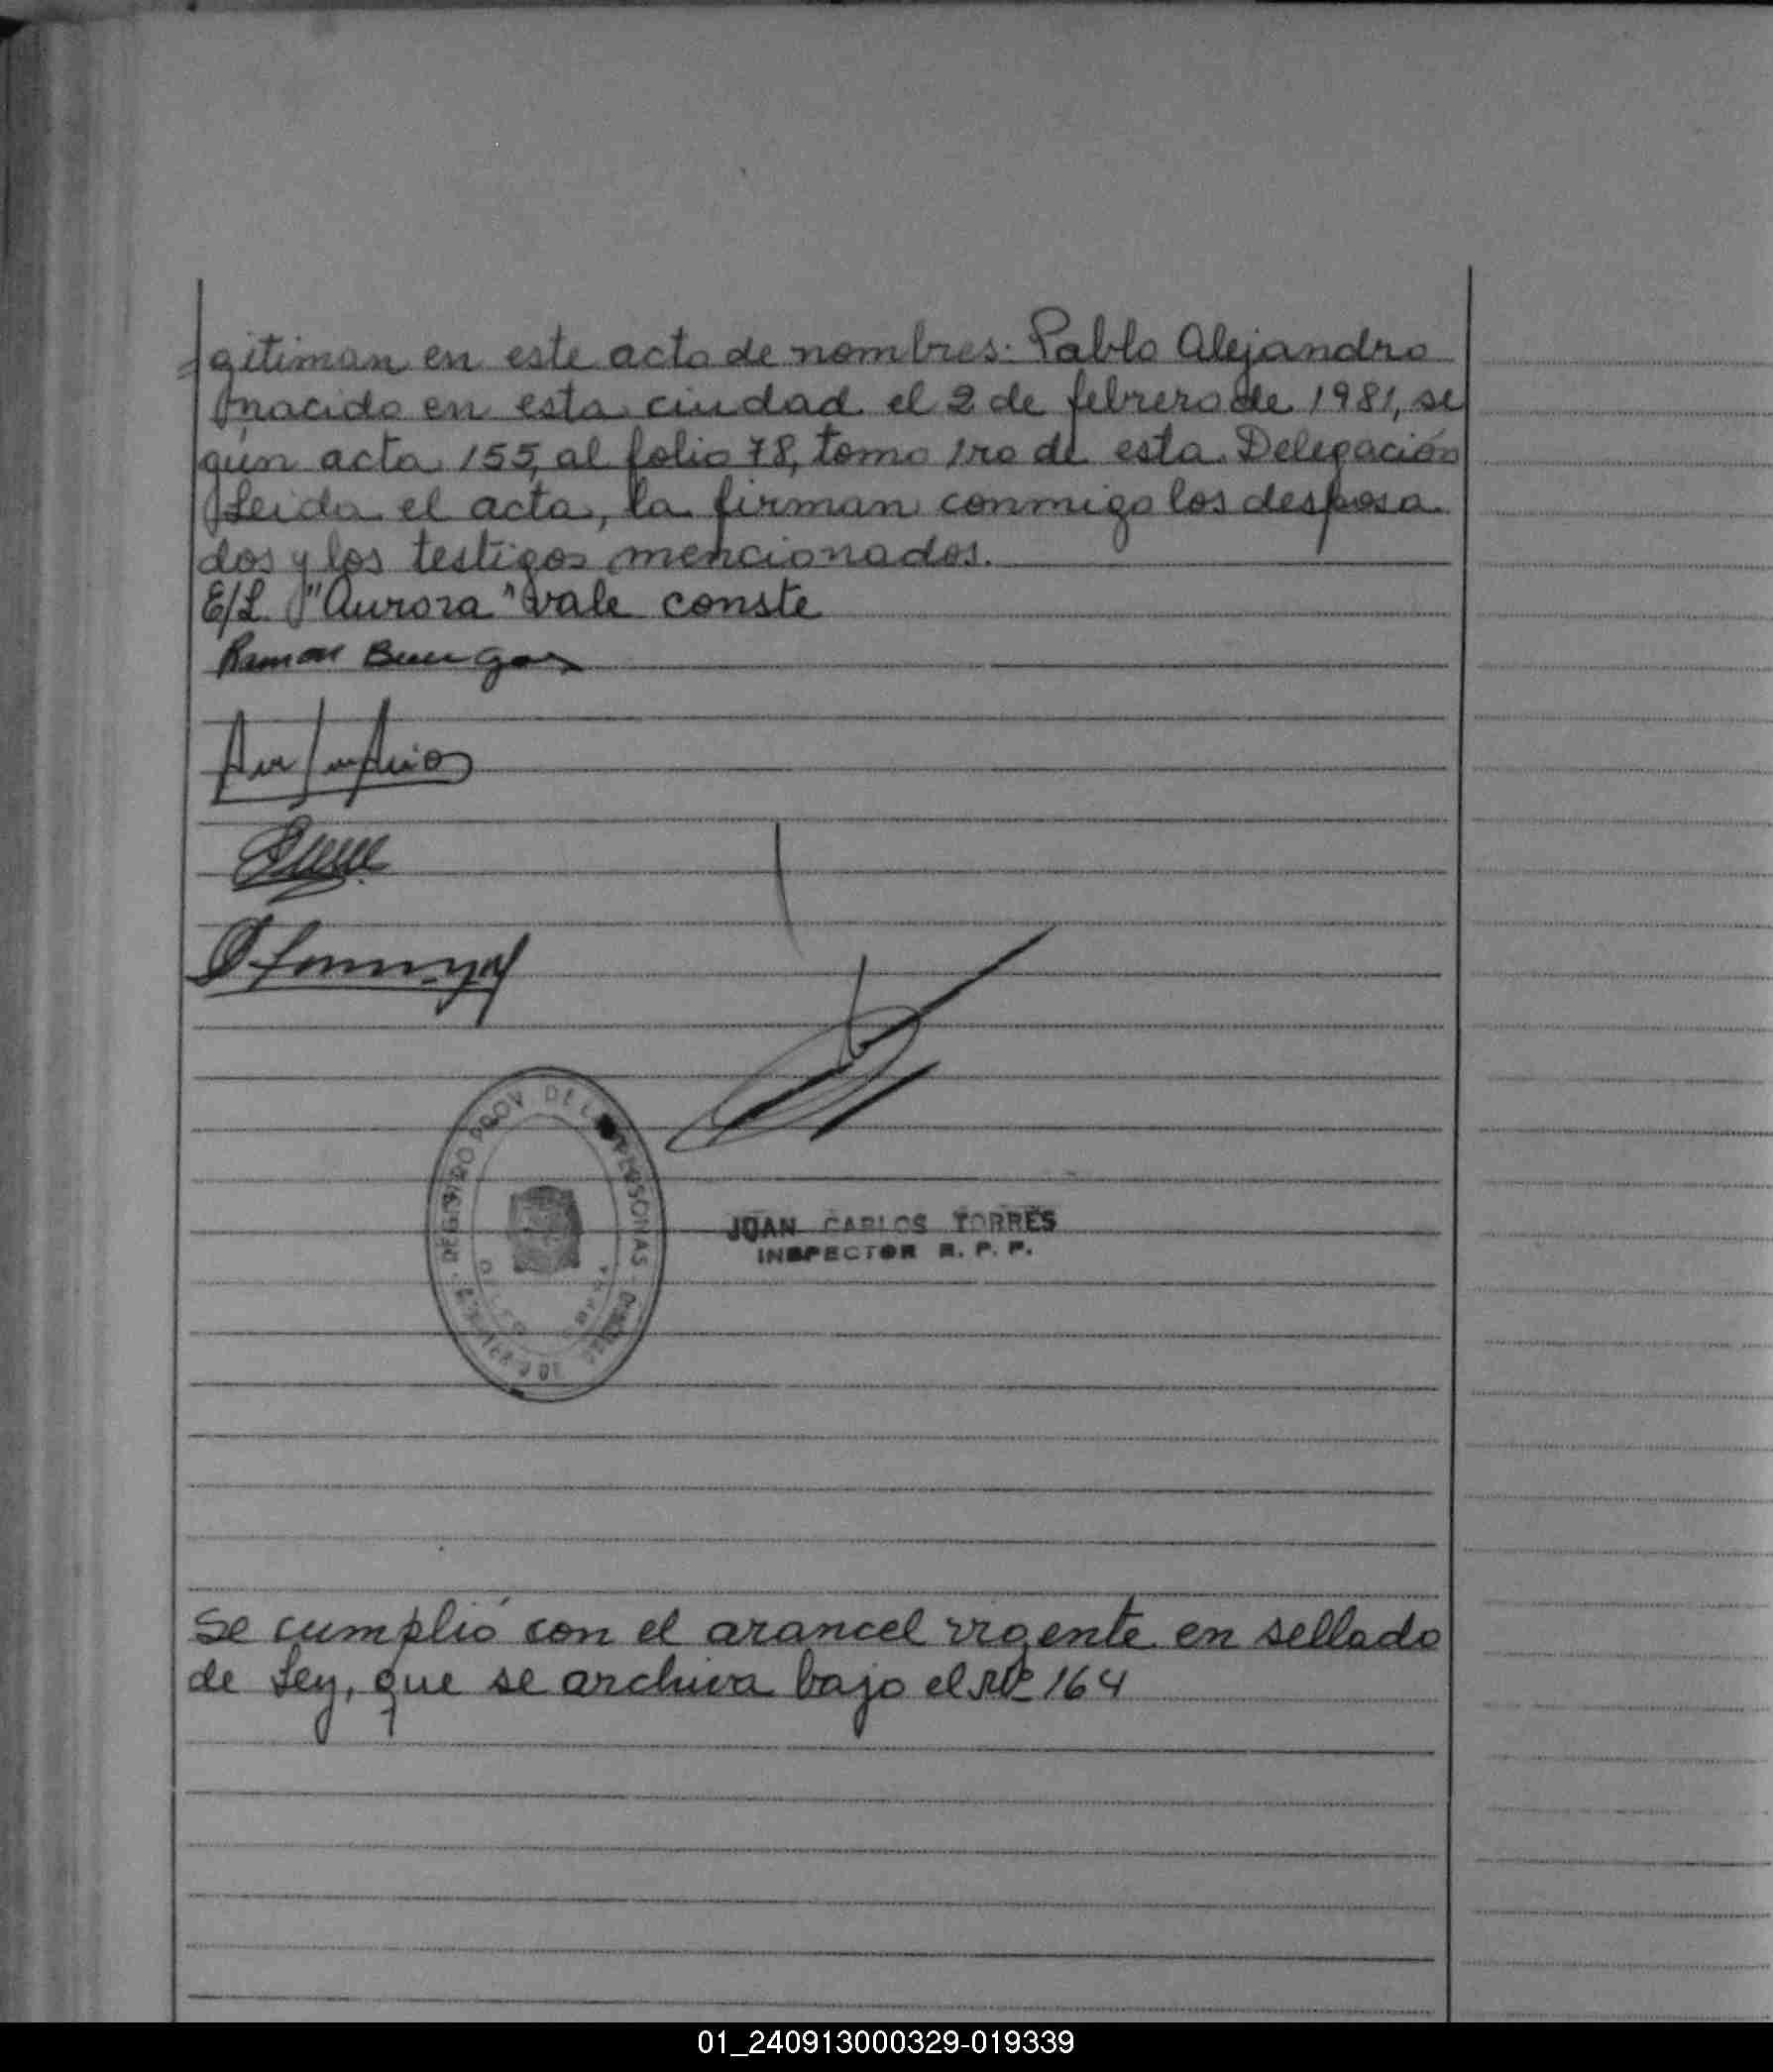 =gitiman en este acto de nombres: Pablo Alejandro
nacido en esta ciudad el 2 de febrero de 1981, se
gún acta 155, al folio 78, tomo 1ro de esta Delegación
Leida el acta, la firman conmigo los desposa
dos y los testigos mencionados.
E/L "Aurora" vale conste
Ramon
REGISTRO PROV. DE LAS PERSONAS
JUAN CARLOS TORRES
INSPECTOR R. P. P.
Se cumplió con el arancel vigente en sellado
de Ley, que se archiva bajo el Nº 164
01_240913000329-019339